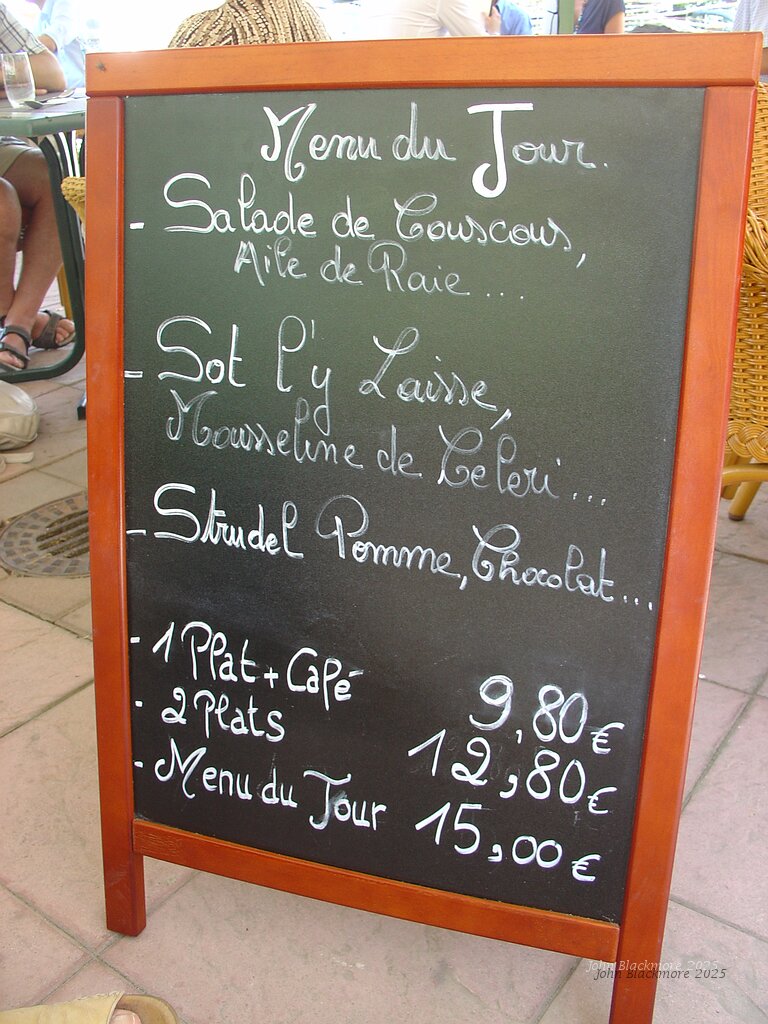 Menu du Jour.
- Salade de Couscous,
Aile de Raie...
- Sot l'y Laisse,
Mousseline de Céleri...
- Strudel Pomme, Chocolat...
- 1 Plat + Café 9,80€
- 2 Plats 12,80€
- Menu du Jour 15,00€
John Blackmore 2025
John Blackmore 2025